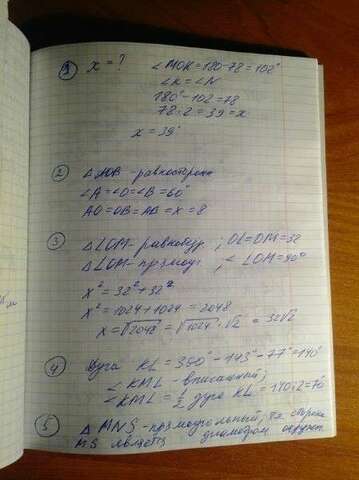 ① x = ? ∠MOK = 180-78 = 102°
∠K = ∠N
180° - 102 = 78
78 : 2 = 39 = x
x = 39°
② △AOB - равносторон
∠A = ∠O = ∠B = 60°
AO = OB = AB = x = 8
③ △LOM - равнобедр ; OL = OM = 32
△LOM - прямоуг , ∠LOM = 90°
x² = 32² + 32²
x² = 1024 + 1024 = 2048
x = √2048 = √1024 · √2 = 32√2
④ Дуга KL = 360° - 143° - 77° = 140°
∠KML - вписанный ;
∠KML = ½ дуга KL = 140:2 = 70°
⑤ △MNS - прямоугольный, сторона
MS является диаметром окружн